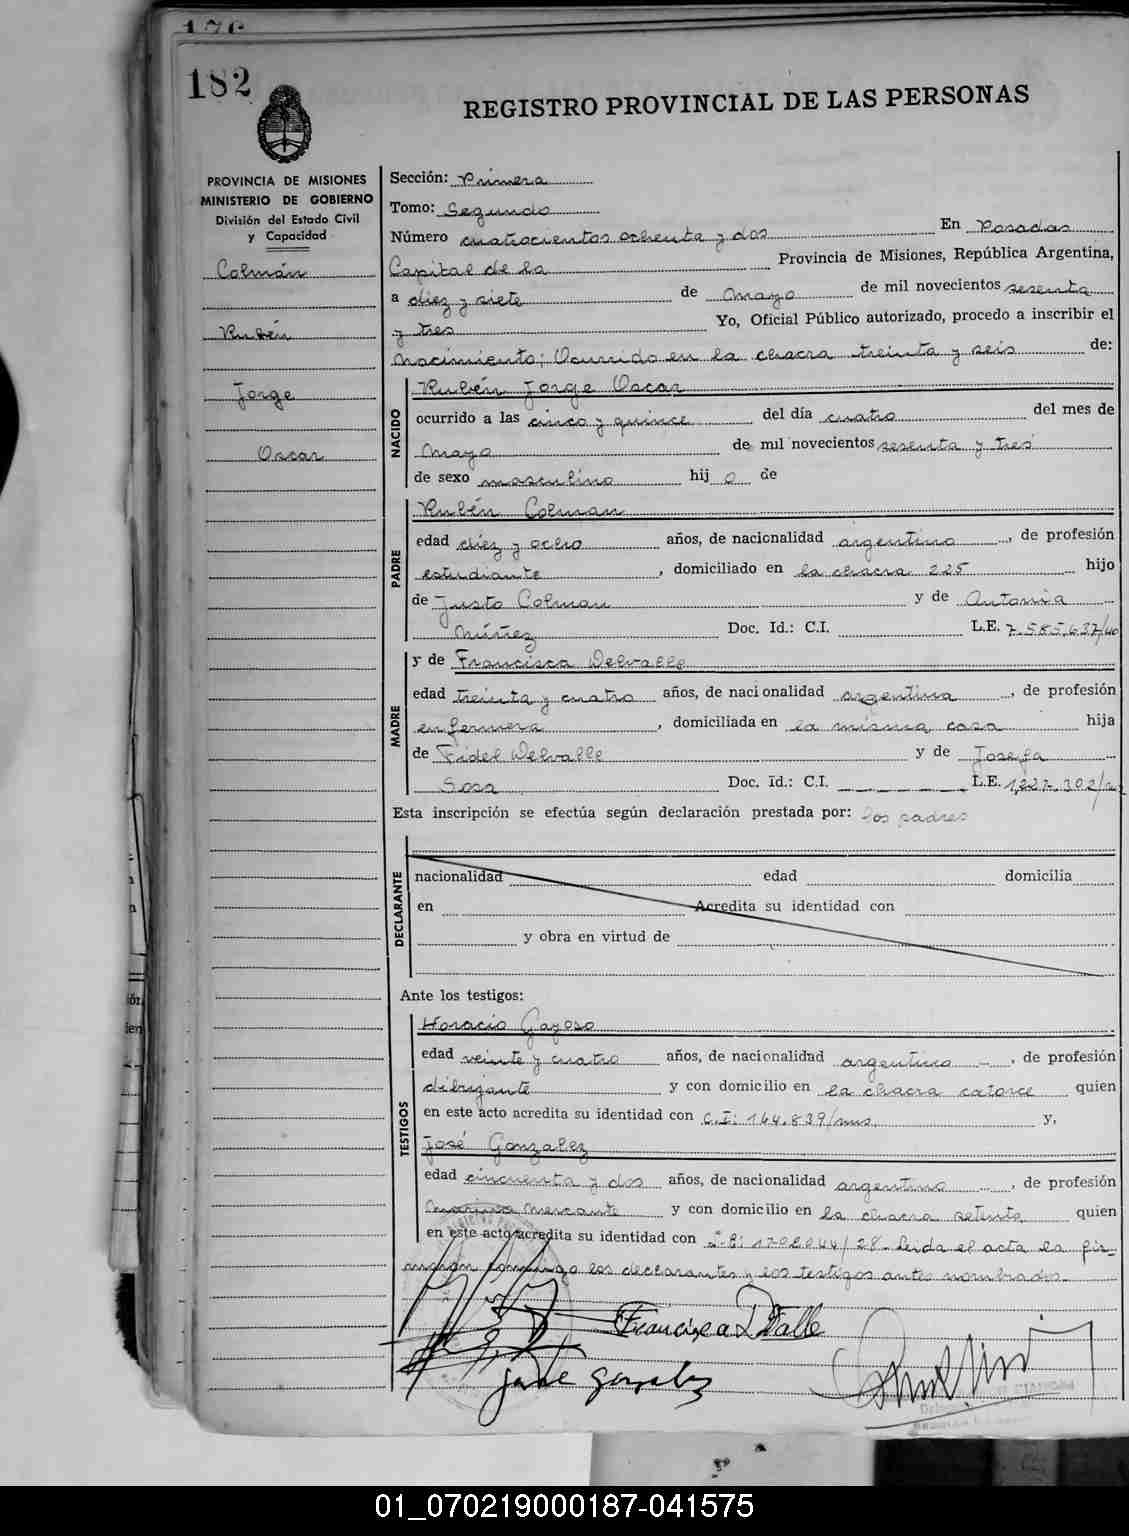 176
182
REGISTRO PROVINCIAL DE LAS PERSONAS
PROVINCIA DE MISIONES
MINISTERIO DE GOBIERNO
División del Estado Civil
y Capacidad
Colmán
Rubén
Jorge
Oscar
Sección: Primera
Tomo: Segundo
Número cuatrocientos ochenta y dos En Posadas
Capital de la Provincia de Misiones, República Argentina,
a diez y siete de Mayo de mil novecientos sesenta
y tres Yo, Oficial Público autorizado, procedo a inscribir el
Nacimiento; Ocurrido en la chacra treinta y seis de:
NACIDO
Rubén Jorge Oscar
ocurrido a las cinco y quince del día cuatro del mes de
Mayo de mil novecientos sesenta y tres
de sexo masculino hij o de
PADRE
Rubén Colman
edad diez y ocho años, de nacionalidad argentino, de profesión
estudiante, domiciliado en la chacra 225 hijo
de Justo Colman y de Antonia
Núñez Doc. Id.: C.I. L.E. 7.585.637/
MADRE
y de Francisca Delvalle
edad treinta y cuatro años, de nacionalidad argentina, de profesión
enfermera, domiciliada en la misma casa hija
de Fidel Delvalle y de Josefa
Sosa Doc. Id.: C.I. L.E. 1,227.302/
Esta inscripción se efectúa según declaración prestada por: los padres
DECLARANTE
nacionalidad edad domicilia
en Acredita su identidad con
y obra en virtud de
Ante los testigos:
TESTIGOS
Horacio Gayoso
edad veinte y cuatro años, de nacionalidad argentino, de profesión
dibujante y con domicilio en la chacra catorce quien
en este acto acredita su identidad con C.I: 164.839/mns. y,
José Gonzalez
edad cincuenta y dos años, de nacionalidad argentino, de profesión
Marina Mercante y con domicilio en la chacra setenta quien
en este acto acredita su identidad con Leida el acta la fir-
conmigo los declarantes y los testigos antes nombrados.
Francisca D Valle
Jose Gonzalez
01_070219000187-041575